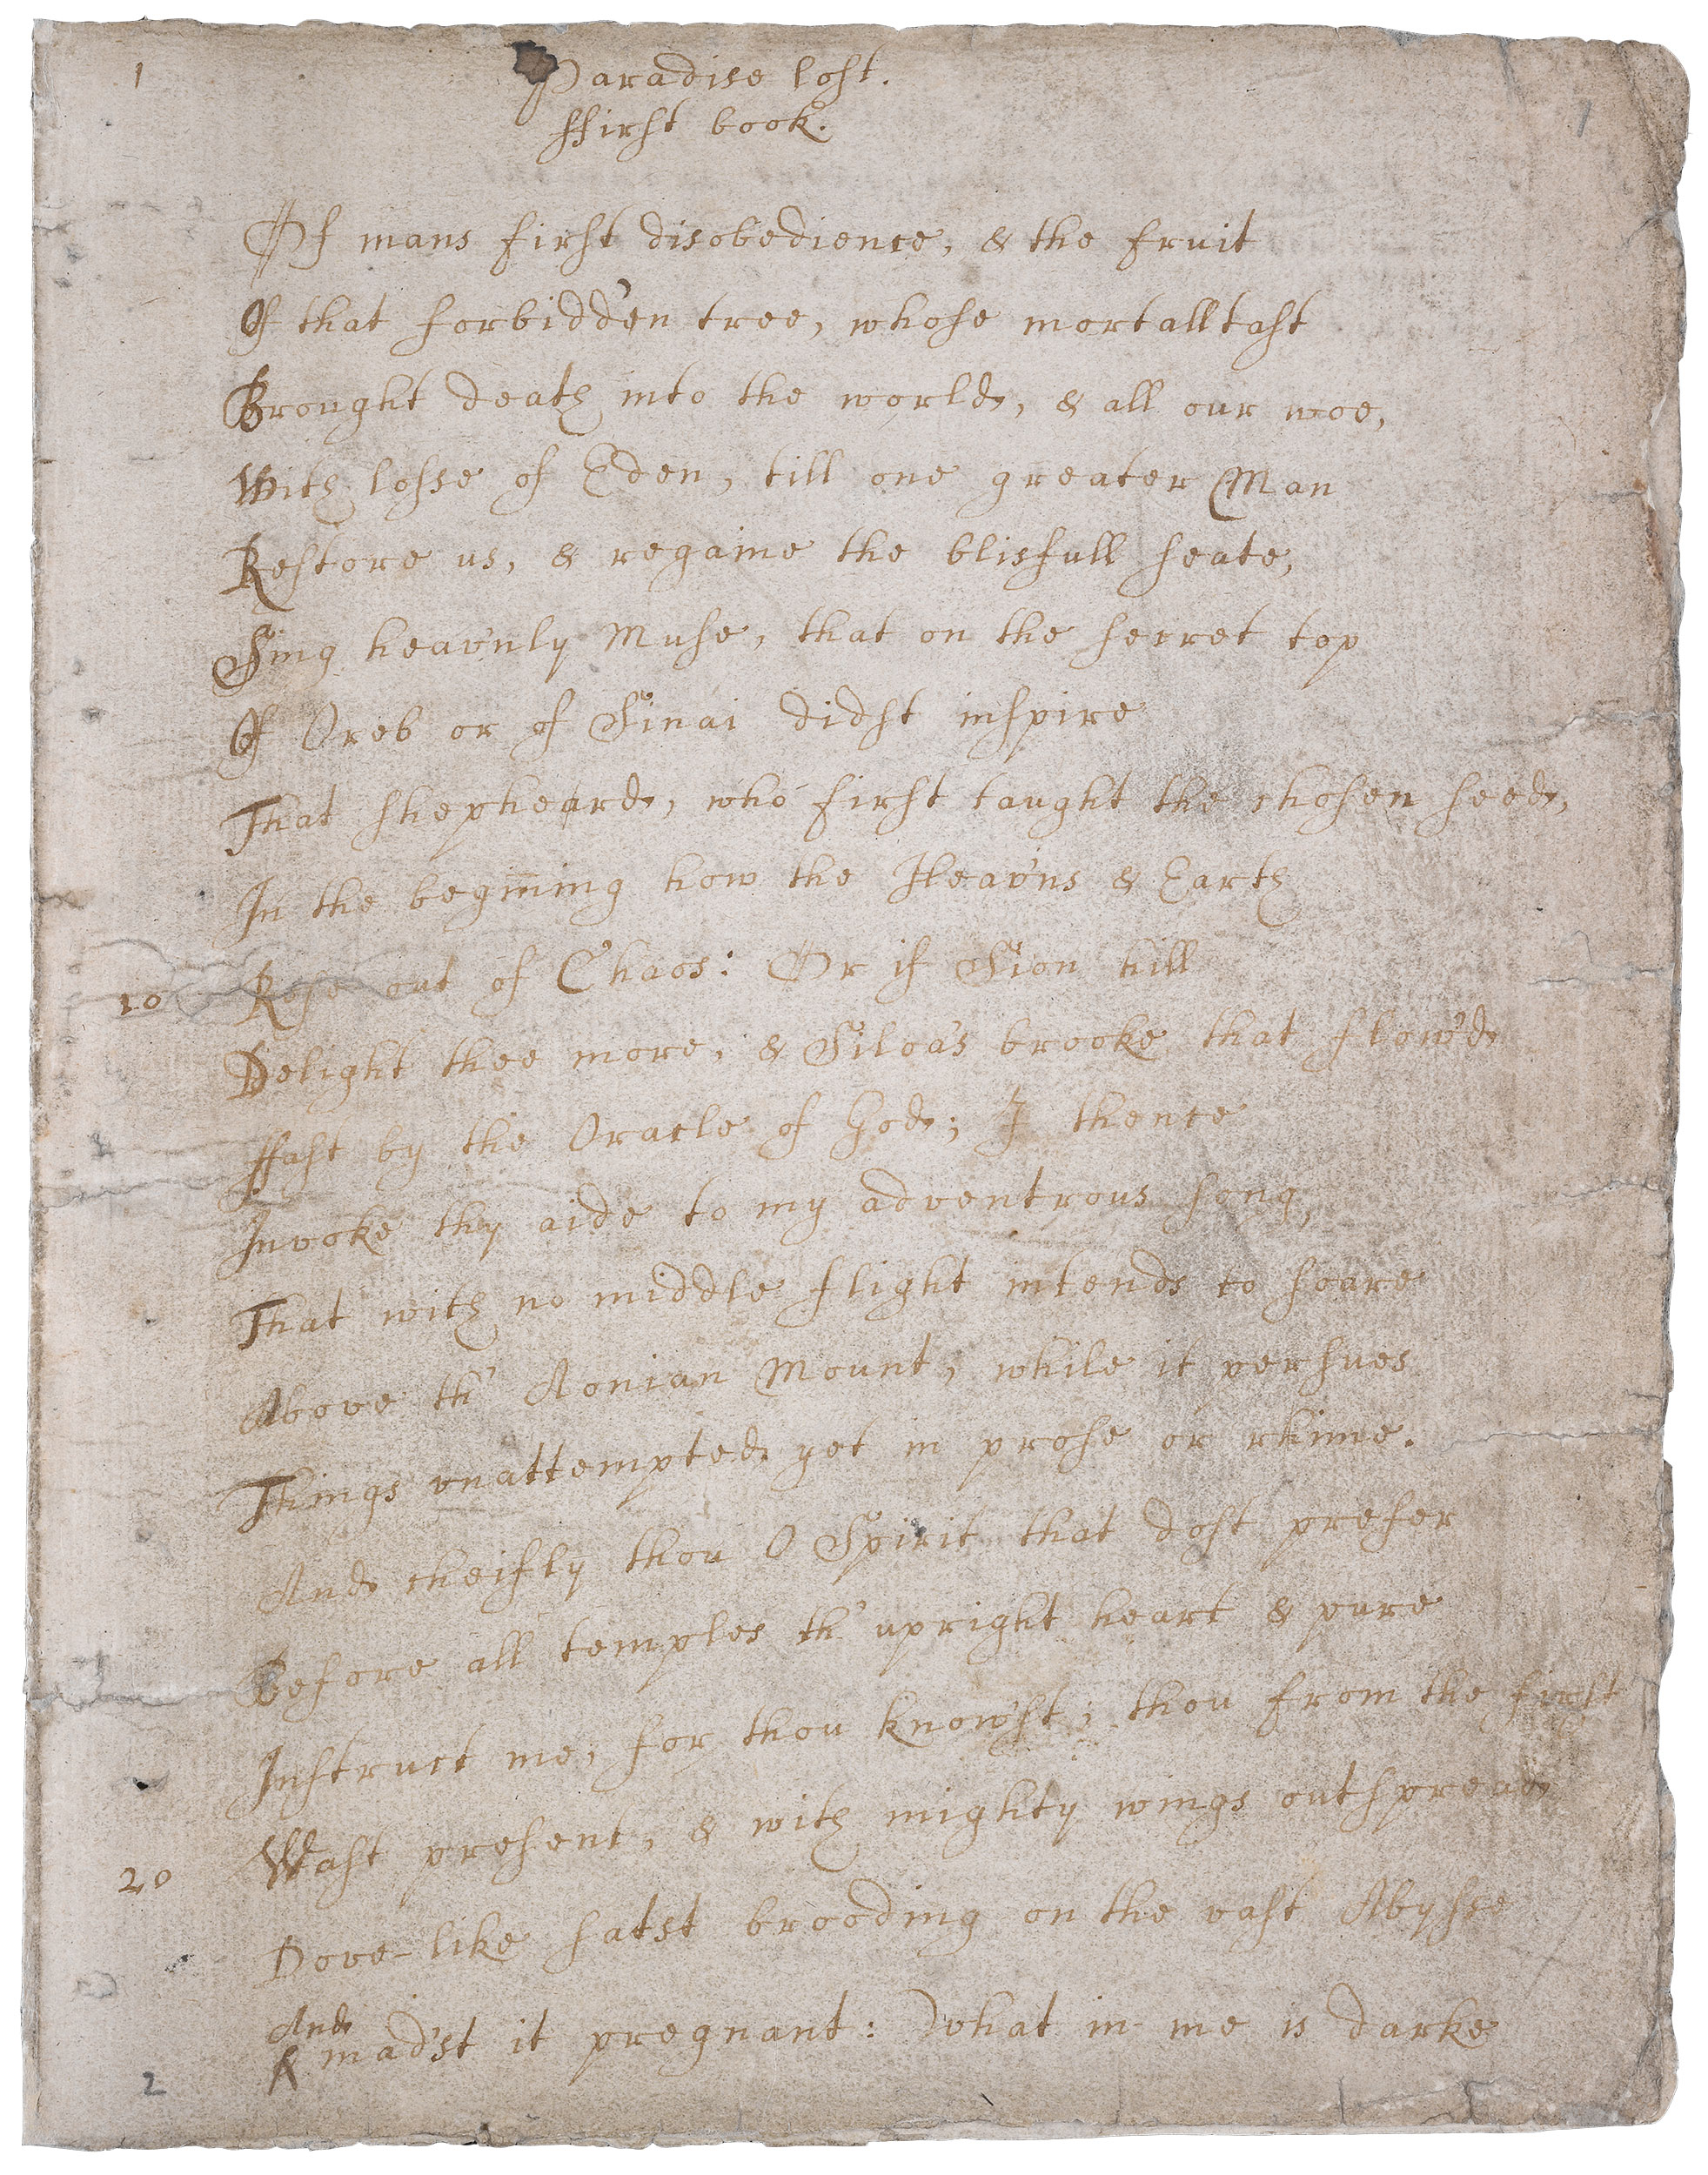 1
Paradise lost.
ffirst book.
1
Of mans first disobedience, & the fruit
Of that forbidd'en tree, whose mortall tast
Brought death into the world, & all our woe,
With losse of Eden, till one greater Man
Restore us, & regaine the blisfull seate,
Sing heav'nly Muse, that on the secret top
Of Oreb or of Sinai didst inspire
That shepheard, who first taught the chosen seed,
In the beginning how the Heav'ns & Earth
10 Rose out of Chaos: Or if Sion hill
Delight thee more, & Siloa's brooke that flow'd
ffast by the Oracle of God; I thence
Invoke thy aide to my adventrous song,
That with no middle flight intends to soare
Above th' Aonian Mount, while it persues
Things unattempted yet in prose or rhime.
And cheifly thou O Spirit that dost prefer
Before all temples th' upright heart & pure
Instruct me, for thou know'st; thou from the first
20 Wast present, & with mighty wings outspread
Dove-like satst brooding on the vast Abysse
And
& mad'st it pregnant: What in me is darke
2